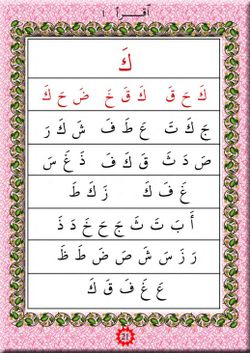 اقرأ ١
كَ
كَ حَ قَ كَ قَ خَ ضَ حَ كَ
جَ كَ تَ عَ طَ فَ شَ كَ رَ
صَ دَ ثَ قَ كَ فَ ذَ غَ سَ
غَ فَ كَ زَ كَ طَ
أَ بَ تَ ثَ جَ حَ خَ دَ ذَ
رَ زَ سَ شَ صَ ضَ طَ ظَ
عَ غَ فَ قَ كَ